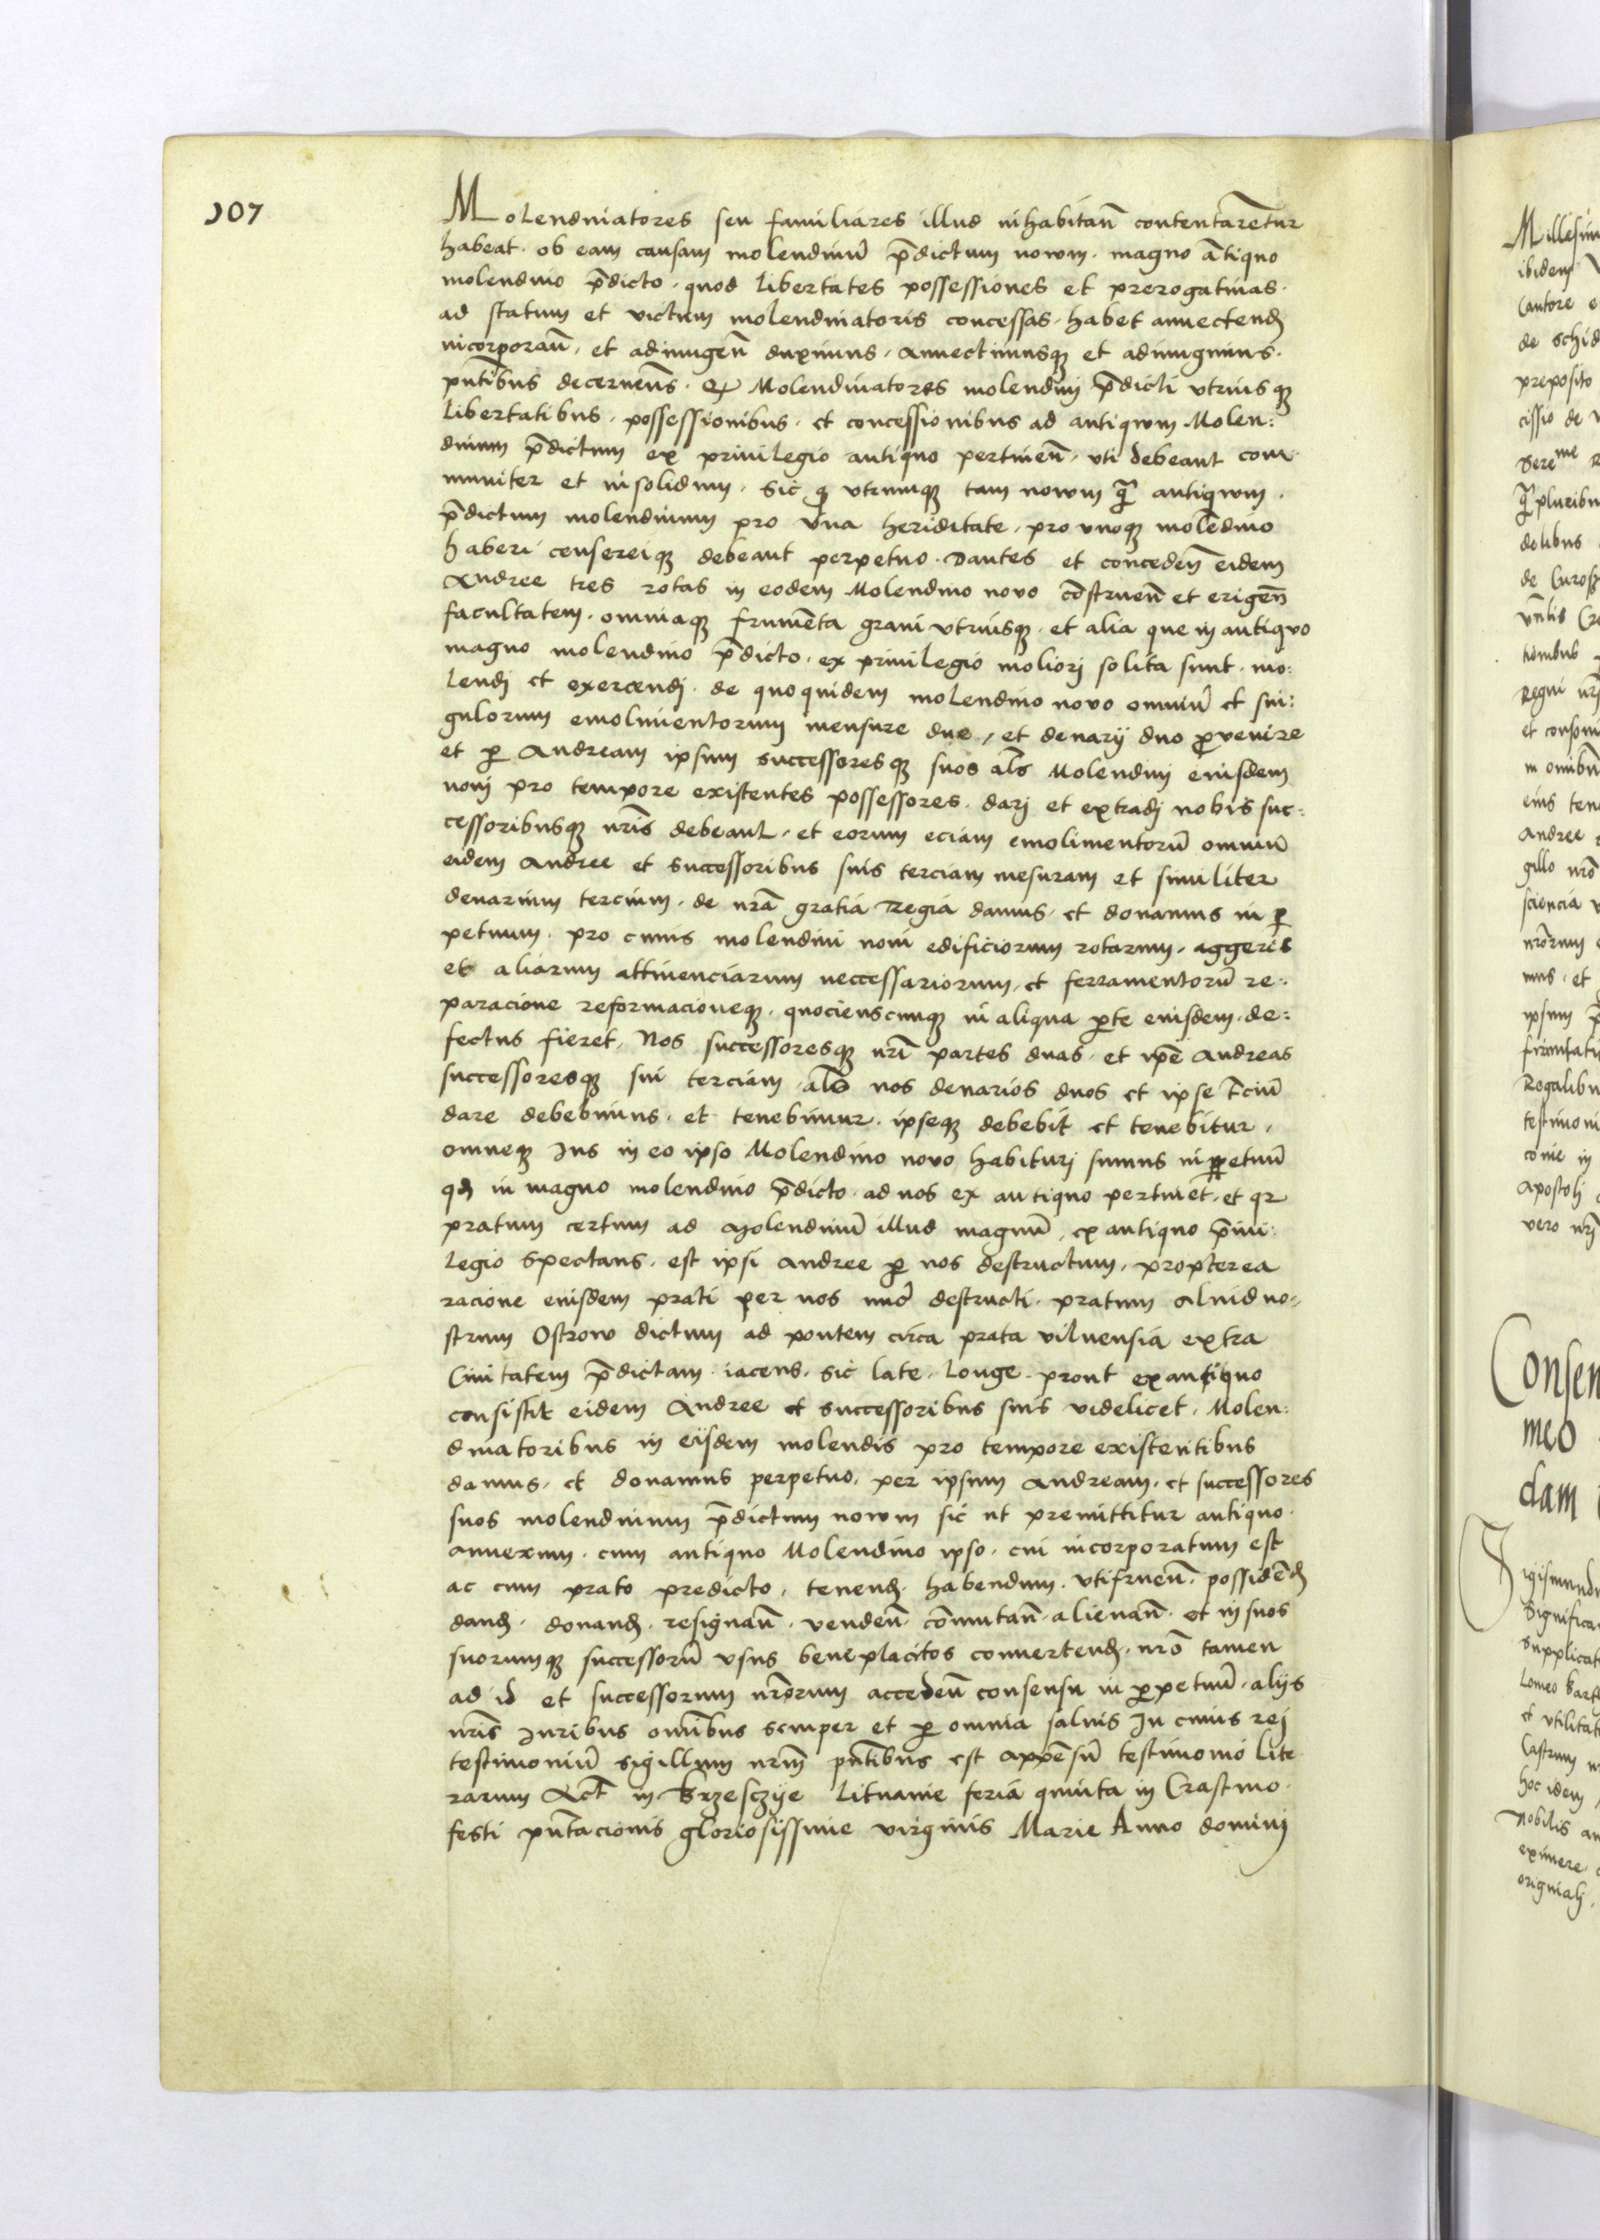 107
Molendinatores seu familiares illud inhabitan̄ contentarentur
habeat · ob eam causam molendinū p̄dictum nowm · magno ātiquo
molendino p̄dicto · quod libertates possessiones et prerogatiuas ·
ad statum et victum molendinatoris concessas · habet annectend̄
incorporan̄ · et adiungen̄ duximus · Annectimusqȝ et adiungimus ·
pn̄tibus decernen̄s · Molendinatores molendini p̄dicti vtriusqȝ
libertatibus · possessionibus · et concessionibus ad antiqwm Molen:
dinum p̄dictum ex priuilegio antiquo pertinen̄ · vti debeant com
muniter et insolidum · sic q utrumqȝ tam nowm q̄ antiqwm ·
p̄dictum molendinum pro vna heriditate · pro vnoqȝ molēdino
haberi censereiqȝ debeant perpetuo · Dantes et conceden̄ eidem
Andree tres rotas in eodem Molendino novo cōstruen̄ et erigen̄
facultatem · omniaqȝ frumēta grani vtriusqȝ · et alia que in antiqvo
magno molendino p̄dicto · ex priuilegio moliorj solita sunt · mo:
lendj et exercendj · de quoquidem molendino novo omniū et sin:
gulorum emolimentorum mensure due, et denarij duo provenire
et p Andream ipsum successoresqȝ suos al̄s Molendini eiusdem
noui pro tempore existentes possessores · darj et extradj nobis suc:
cessoribusqȝ nr̄is debeant · et eorum eciam emolimentorū omniū
eidem Andree et successoribus suis terciam mesuram et simuliter
denarium tercium · de nr̄a gratia Regia damus · et donamus in p
petuum · pro cuius molendini noui edificiorum rotarum · aggeris
et aliarum attinenciarum neccessariorum · et ferramentorū re:
paracione reformacioneqȝ · quocienscumqȝ in aliqua pte eiusdem · de:
fectus fieret · Nos successoresqȝ nr̄i partes duas · et ip̄e Andreas
successoresqȝ sui terciam · al̄s nos denarios duos et ipse t̄ciū
dare debebimus · et tenebimur · ipseqȝ debebit et tenebitur ·
omneqȝ Ius in eo ipso Molendino novo habiturj sumus in ppetuū
qd̄ in magno molendino p̄dicto · ad nos ex antiquo pertinet · et qr
pratum certum ad Molendinū illud magnū · ex antiquo p̄iui:
legio spectans · est ipsi Andree p nos destructum · propterea
racione eiusdem prati per nos destructi · pratum aliud no:
strum Ostrow dictum ad pontem circa prata vilnensia extra
Ciuitatem p̄dictam iacens · sic late · longe · prout ex antiquo
consistit eidem Andree et successoribus suis videlicet · Molen:
dinatoribus in eijsdem molendis pro tempore existentibus
damus · et donamus perpetuo · per ipsum Andream · et successores
suos molendinum p̄dictum nowm sic ut premittitur antiquo ·
annexum · cum antiquo Molendino ipso · cui incorporatum est
ac cum prato predicto · tenend̄ · habendum · vtifruen̄ · possidēd̄
dand̄ · donand̄ · resignan̄ · venden̄ · cōmutan̄ · alienan̄ · et in suos
suorumqȝ successorū vsus beneplacitos conuertend̄ · nr̄o tamen
ad id et successorum nr̄orum acceden̄ consensu in ppetuū · alijs
nr̄is Iuribus omībus semper et p omnia saluis In cuius rej
testimoniū sigillum nr̄m pn̄tibus est appēsū testimonio lite
rarum Act̄ in Brzesczye Lituanie feria quinta in Crastino ·
festi pn̄tacionis gloriosissime virginis Marie Anno dominj
ibidem
Cantore
preposito
cissio de
delibus
Regni nr̄j
Andree
gillo nr̄o
sciencia
nr̄orum
mus · et
ipsum
testimoni
Apostolj
vero nr̄j
Consen
meo
dam
Significa
supplicat
et vtilitat
Castrum
hoc idem
Nobilis
eximere
originalj